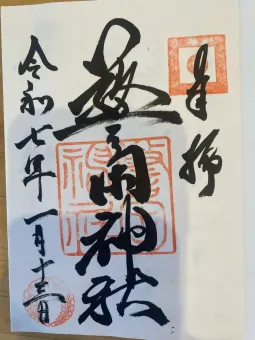 奉拝
警固神社
令和七年一月十三日